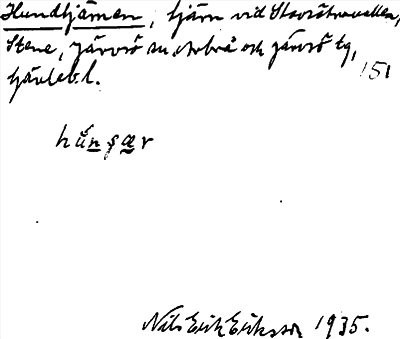 Hundtjärnen, tjärn vid Storsätravallen,
Stene, Järvsö sn, Arbrå och Järvsö tg,
Gävleb. l.
151
Nils Erik Eriksson 1935.